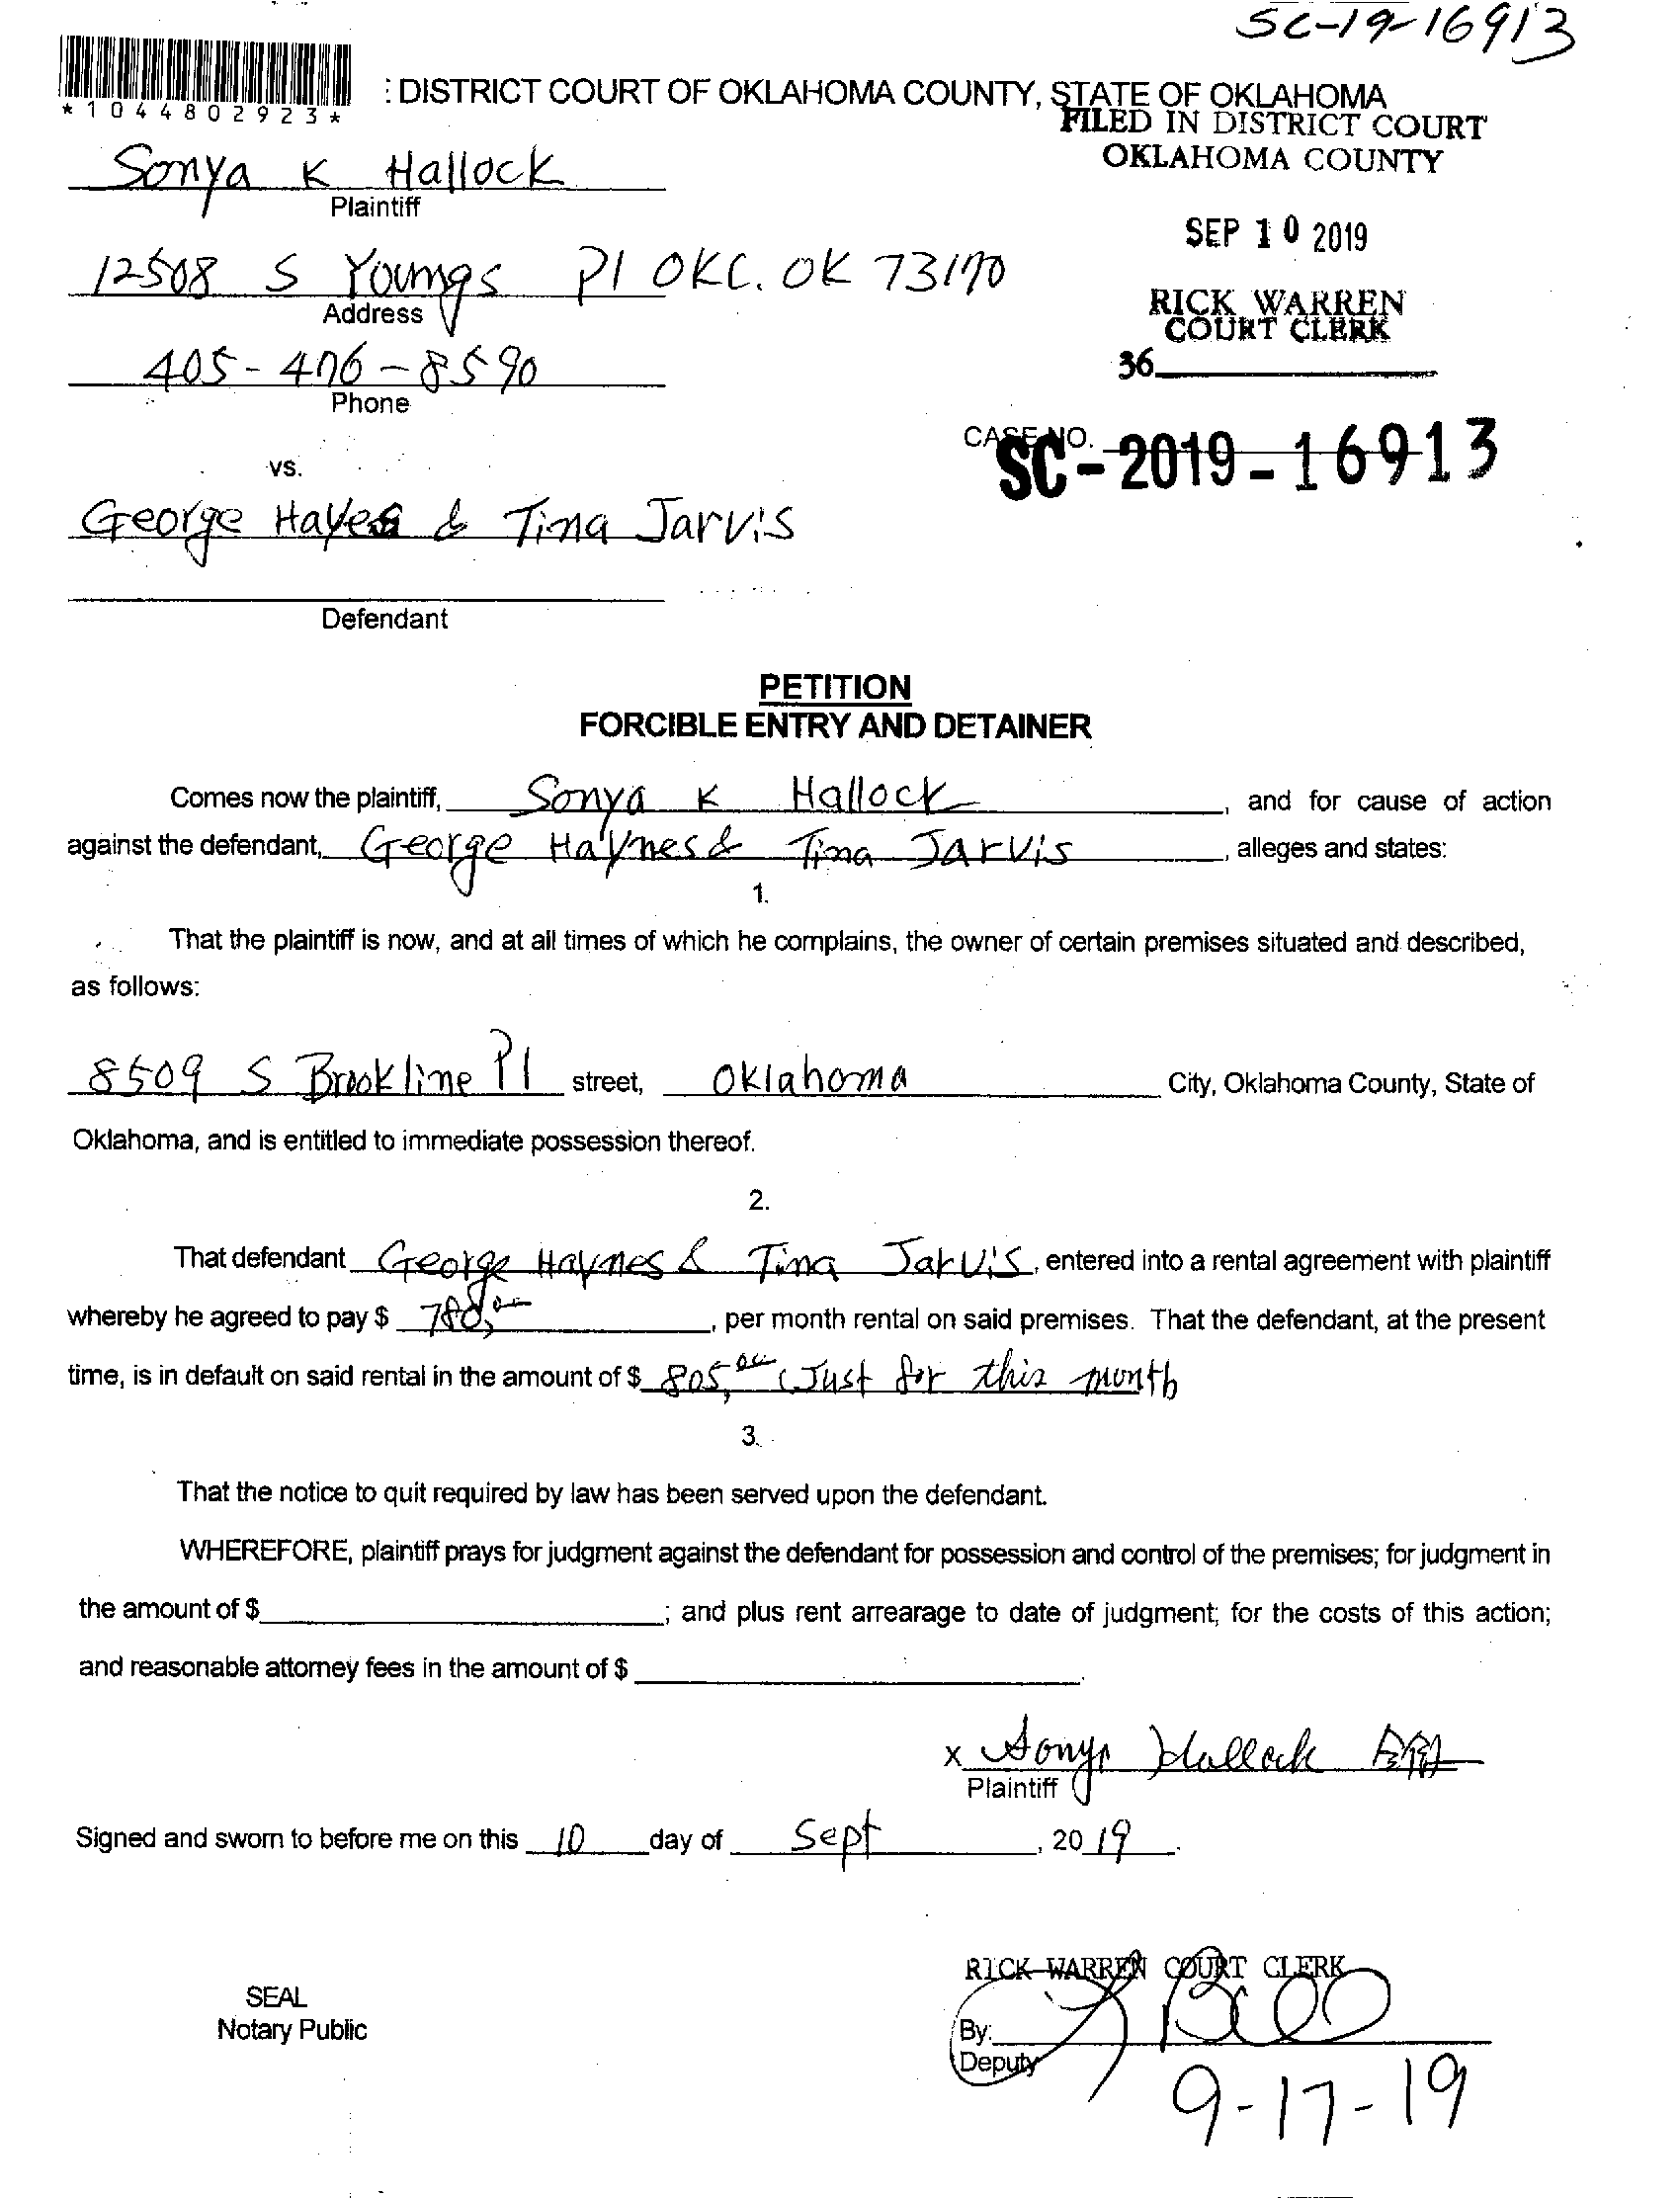 SC-19-16913
*1044802923*
: DISTRICT COURT OF OKLAHOMA COUNTY, STATE OF OKLAHOMA
FILED IN DISTRICT COURT
OKLAHOMA COUNTY
Sonya K Hallock
Plaintiff
SEP 10 2019
12508 S Youngs Pl OKC. OK 73170
Address
RICK WARREN
COURT CLERK
36
405-476-8590
Phone
CASE NO.
SC-2019-16913
vs.
George Hayes & Tina Jarvis
Defendant
PETITION
FORCIBLE ENTRY AND DETAINER
Comes now the plaintiff, Sonya K Hallock, and for cause of action
against the defendant, George Haynes & Tina Jarvis, alleges and states:
1.
That the plaintiff is now, and at all times of which he complains, the owner of certain premises situated and described,
as follows:
8509 S Brookline Pl street, Oklahoma City, Oklahoma County, State of
Oklahoma, and is entitled to immediate possession thereof.
2.
That defendant George Haynes & Tina Jarvis, entered into a rental agreement with plaintiff
whereby he agreed to pay $, per month rental on said premises. That the defendant, at the present
time, is in default on said rental in the amount of $ 805,00 (Just for this month
3.
That the notice to quit required by law has been served upon the defendant.
WHEREFORE, plaintiff prays for judgment against the defendant for possession and control of the premises; for judgment in
the amount of $; and plus rent arrearage to date of judgment; for the costs of this action;
and reasonable attorney fees in the amount of $.
x Sonya Hallock
Plaintiff
Signed and sworn to before me on this 10 day of Sept, 2019.
RICK WARREN COURT CLERK
SEAL
Notary Public
By:
Deputy
9-17-19